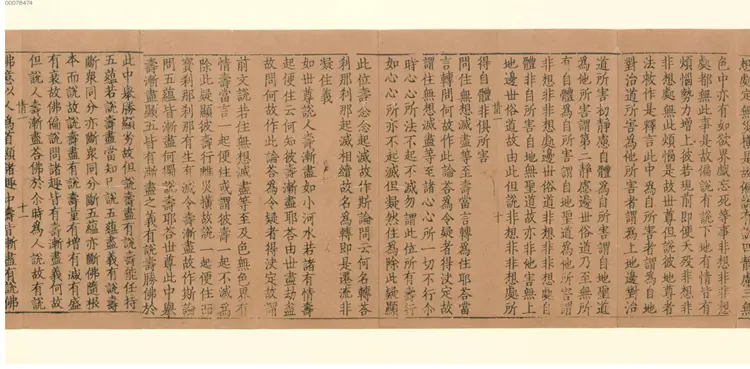 色中亦有如欲界戲忘死等事非想非非想
處都無此事是故偏說有說下地有情皆有
煩惱勢力增上彼若現前即便夭歿非想非
非想處無此煩惱是故世尊但說彼地尊者
法救作是釋言此中為自所害者謂為自地
對治道所害為他所害者謂為上地邊對治
道所害初靜慮自體為自所害謂自地聖道
為他所害謂第二靜慮邊世俗道乃至無所
有自體為自所害謂自地聖道為他所害謂
非想非非想處邊世俗道非想非非想處自
體非自所害自地無聖道故非他害無上
地邊世俗道故由此但說非想非非想處所
得自體非俱所害
問住無想滅盡等至壽當言轉為住耶答當
言轉問何故作此論答為令疑者得決定故
謂住無想滅盡等至諸心心所一切不行分
時心心所法不起不滅勿謂此位所有壽行
如心心所亦不起不滅但凝然住為除此疑顯
此位壽念念起滅故作斯論問云何名轉答
剎那剎那起滅相續故名為轉即是還流非
凝住義
如世尊說人壽漸盡如小河水若諸有情壽
起便住云何知彼壽漸盡耶答由世劫盡
故問何故作此論答為令疑者得決定故謂
前文說若住無想滅盡等至及色無色界有
情壽當言一起便住或謂彼壽一起不滅為
除此疑顯彼壽行雖無災橫故說一起便住而
實剎那剎那有生有滅令壽漸盡故作斯論
問五蘊皆漸盡何獨說壽耶答世尊此中舉
壽漸盡顯五皆有漸盡之義有說壽勝佛於
此中舉勝顯劣故但說壽盡有說壽能任持
五蘊若說壽盡當知已說五蘊盡義有說壽
斷眾同分亦斷眾同分斷五蘊亦斷佛隨根
本而說故說壽盡有說壽量有增有減有盛
有衰故佛偏說問諸趣皆有壽漸盡義何故
但說人壽漸盡答佛於尒時為人說故有說
佛意以人為首顯諸趣中壽皆漸盡有說佛